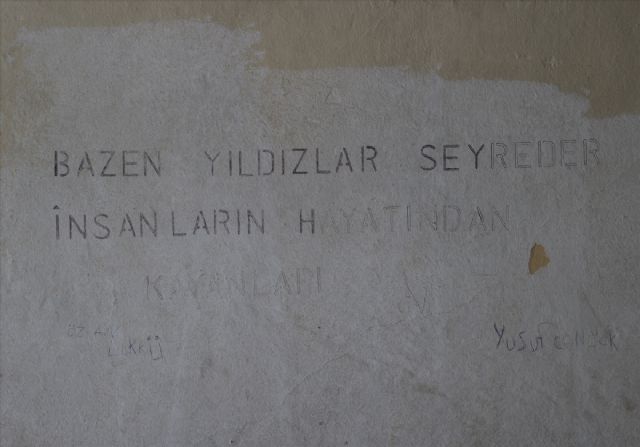 BAZEN YILDIZLAR SEYREDER
İNSANLARIN HAYATINDAN
KAYANLARI
YUSUF